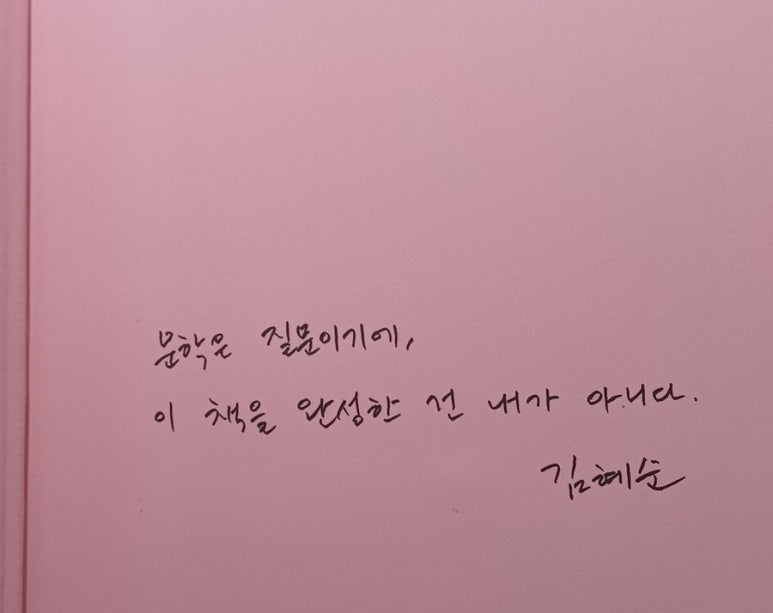 문학은 질문이기에,
이 책을 완성한 건 내가 아니다.
김혜순